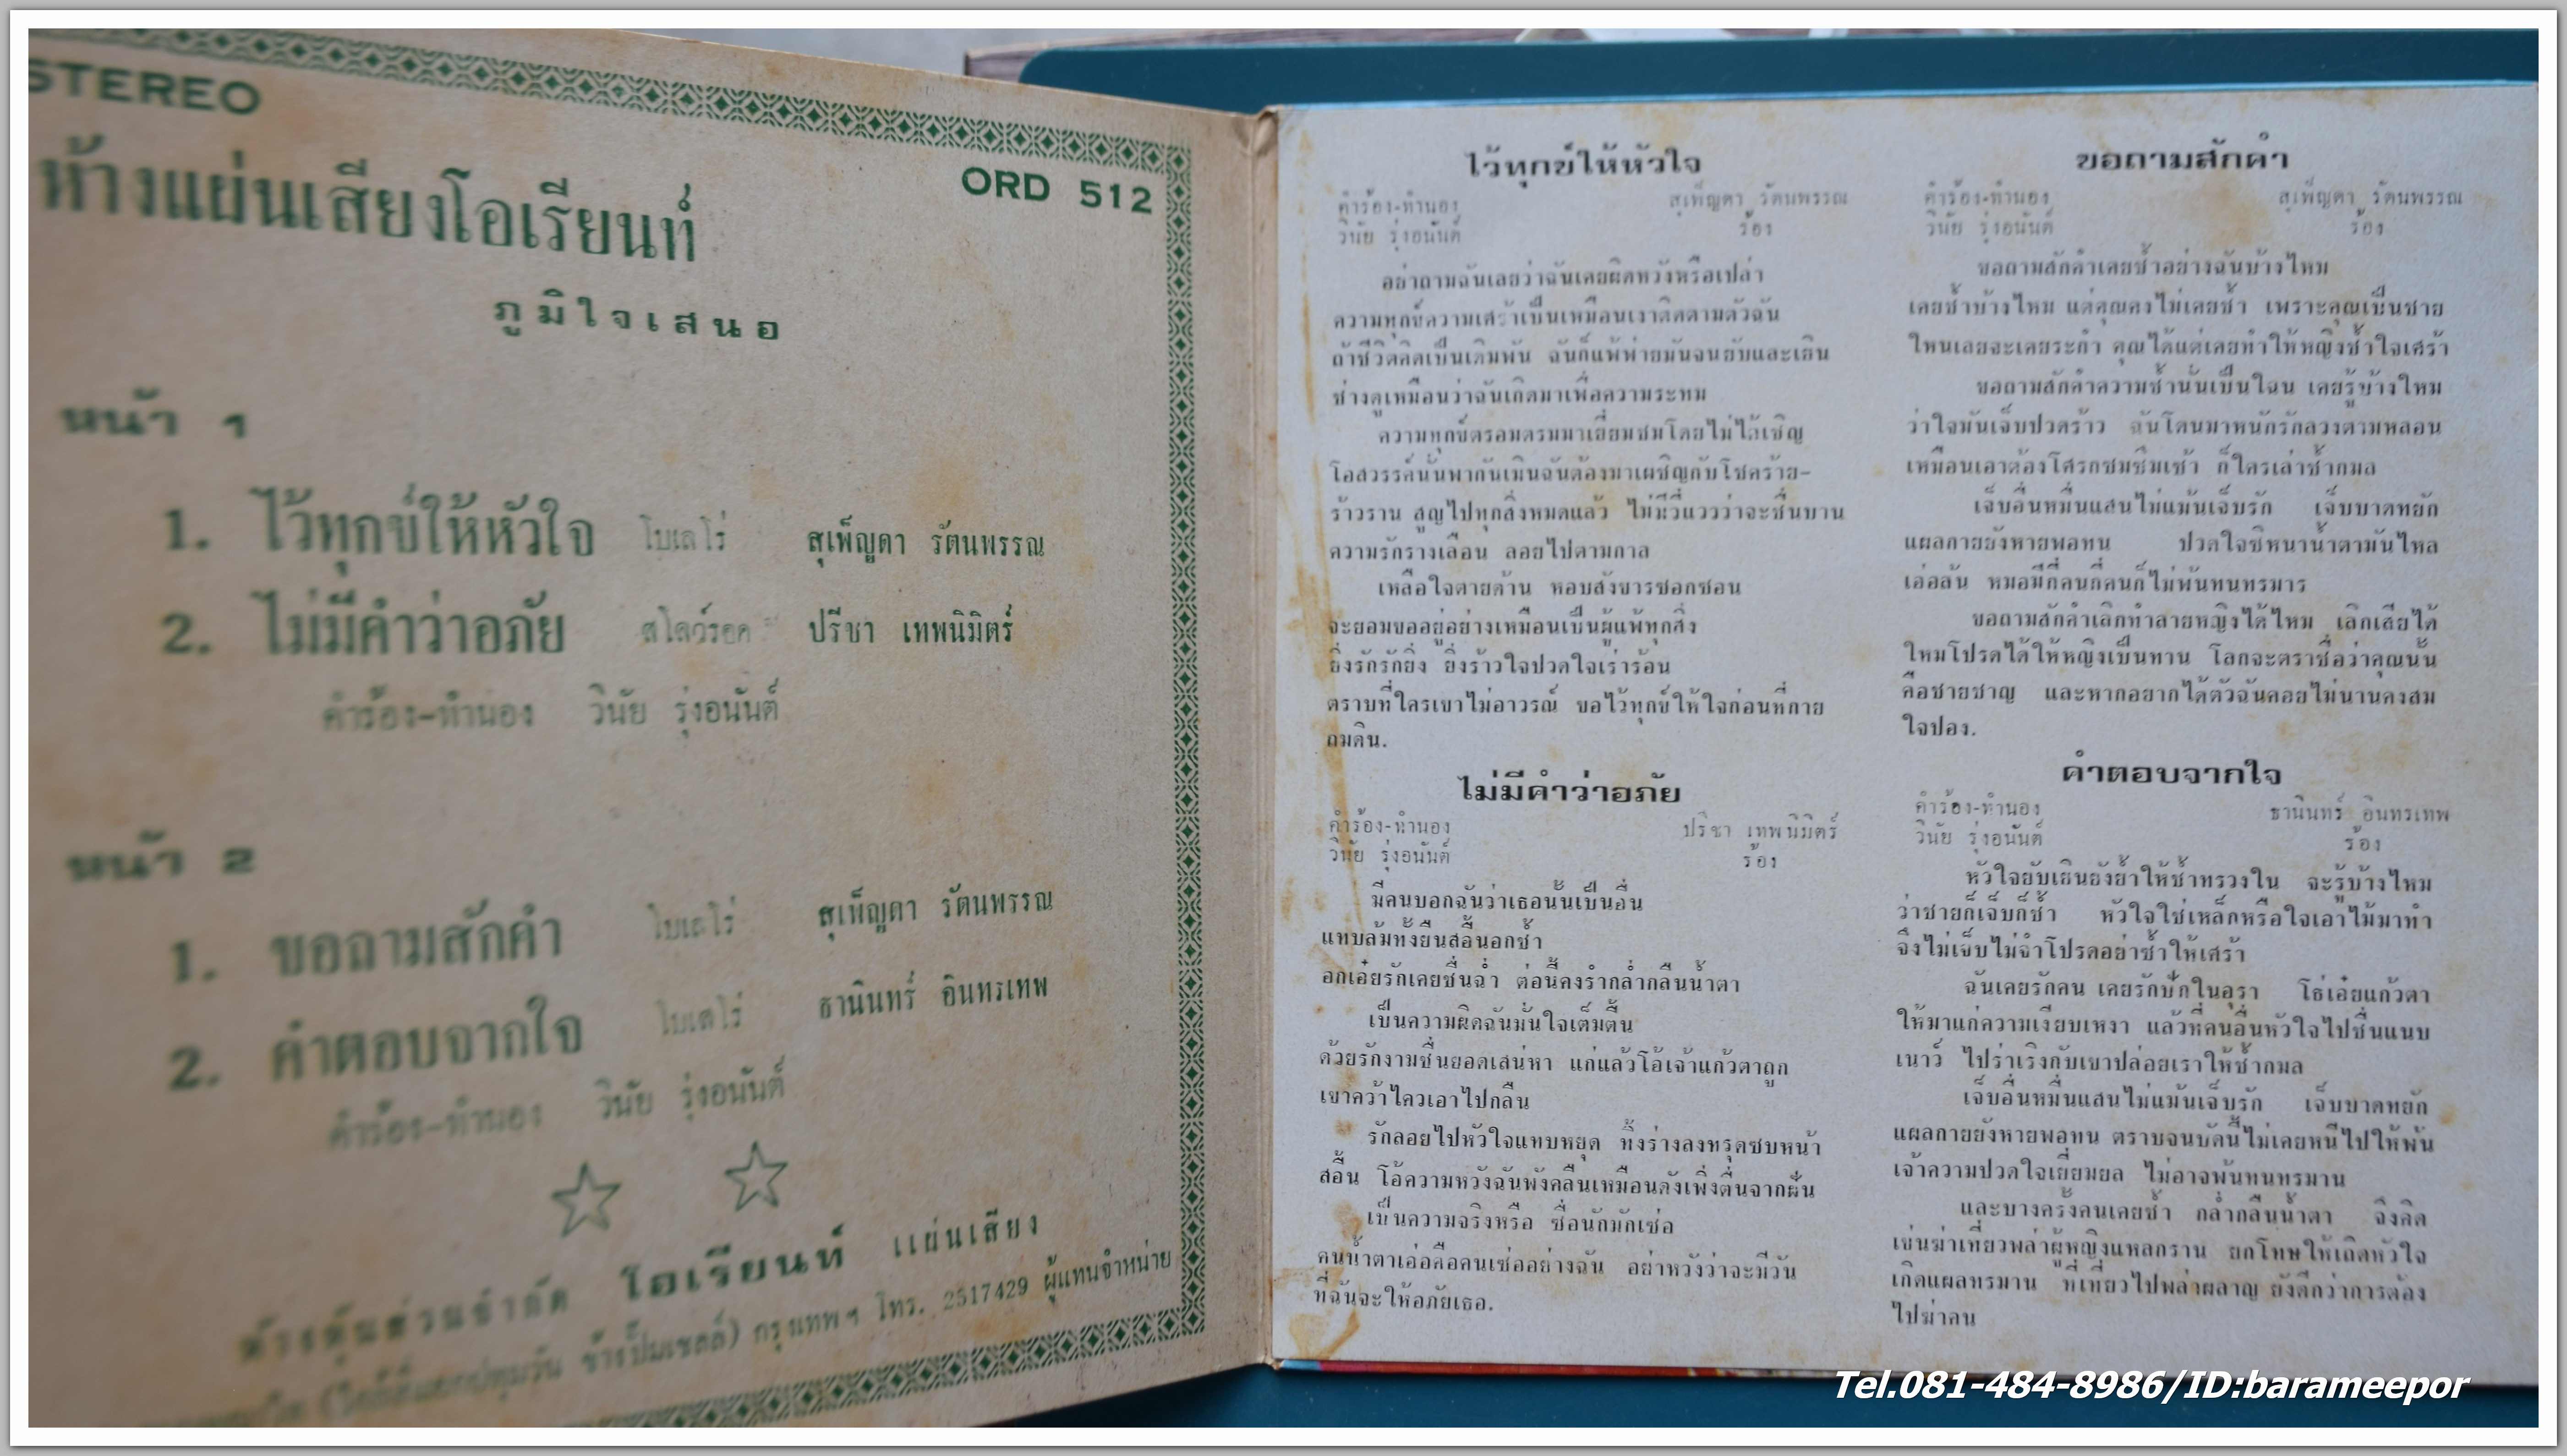 STEREO
ORD 512
ห้างแผ่นเสียงโอเรียนท์
ภูมิใจเสนอ
หน้า 1
1. ไว้ทุกข์ให้หัวใจ โบเลโร่ สุเพ็ญดา รัตนพรรณ
2. ไม่มีคำว่าอภัย สโลว์รอค ปรีชา เทพนิมิตร์
คำร้อง-ทำนอง วินัย รุ่งอนันต์
หน้า 2
1. ขอถามสักคำ โบเลโร่ สุเพ็ญดา รัตนพรรณ
2. คำตอบจากใจ โบเลโร่ ธานินทร์ อินทรเทพ
คำร้อง-ทำนอง วินัย รุ่งอนันต์
ห้างหุ้นส่วนจำกัด โอเรียนท์ แผ่นเสียง
ข้างปั๊มเชลล์) กรุงเทพฯ โทร. 2517429 ผู้แทนจำหน่าย
ไว้ทุกข์ให้หัวใจ
คำร้อง-ทำนอง สุเพ็ญดา รัตนพรรณ
วินัย รุ่งอนันต์ ร้อง
อย่าถามฉันเลยว่าฉันเคยผิดหวังหรือเปล่า
ความทุกข์ความเศร้าเป็นเหมือนเงาติดตามตัวฉัน
ถ้าชีวิตคิดเป็นเดิมพัน ฉันก็แพ้พ่ายมันจนยับและเยิน
ช่างดูเหมือนว่าฉันเกิดมาเพื่อความระทม
ความทุกข์ตรอมตรมมาเยี่ยมชมโดยไม่ได้เชิญ
โอสวรรค์นั้นพากันเมินฉันต้องมาเผชิญกับโชคร้าย-
ร้าวราน สูญไปทุกสิ่งหมดแล้ว ไม่มีวี่แวววว่าจะชื่นบาน
ความรักรางเลือน ลอยไปตามกาล
เหลือใจตายด้าน หอบสังขารซอกซอน
จะยอมขออยู่อย่างเหมือนเป็นผู้แพ้ทุกสิ่ง
ยิ่งรักรักยิ่ง ยิ่งร้าวใจปวดใจเร่าร้อน
ตราบที่ใครเขาไม่อาวรณ์ ขอไว้ทุกข์ให้ใจก่อนที่กาย
ถมดิน.
ไม่มีคำว่าอภัย
คำร้อง-ทำนอง ปรีชา เทพนิมิตร์
วินัย รุ่งอนันต์ ร้อง
มีคนบอกฉันว่าเธอนั้นเป็นอื่น
แทบล้มทั้งยืนสอื้นอกช้ำ
อกเอ๋ยรักเคยชื่นฉ่ำ ต่อนี้คงรำกล่ำกลืนน้ำตา
เป็นความผิดฉันมั่นใจเต็มตื้น
ด้วยรักงามชื่นยอดเสน่หา แก่แล้วโอ้เจ้าแก้วตาถูก
เขาคว้าไควเอาไปกลืน
รักลอยไปหัวใจแทบหยุด ทิ้งร่างลงทรุดซบหน้า
สอื้น โอ้ความหวังฉันพังคลืนเหมือนดังเพิ่งตื่นจากฝัน
เป็นความจริงหรือ ซื่อนักมักเซ่อ
คนน้ำตาเอ่อคือคนเซ่ออย่างฉัน อย่าหวังว่าจะมีวัน
ที่ฉันจะให้อภัยเธอ.
ขอถามสักคำ
คำร้อง-ทำนอง สุเพ็ญดา รัตนพรรณ
วินัย รุ่งอนันต์ ร้อง
ขอถามสักคำเคยช้ำอย่างฉันบ้างไหม
เคยช้ำบ้างไหม แต่คุณคงไม่เคยช้ำ เพราะคุณเป็นชาย
ไหนเลยจะเคยระกำ คุณได้แต่เคยทำให้หญิงช้ำใจเศร้า
ขอถามสักคำความช้ำนั้นเป็นไฉน เคยรู้บ้างไหม
ว่าใจมันเจ็บปวดร้าว ฉันโดนมาหนักรักลวงตามหลอน
เหมือนเอาต้องโศรกซมซึมเซ้า ก็ใครเล่าช้ำกมล
เจ็บอื่นหมื่นแสนไม่แม้นเจ็บรัก เจ็บบาดหยัก
แผลกายยังหายพอทน ปวดใจซิหนาน้ำตามันไหล
เอ่อล้น หมอมีกี่คนกี่คนก็ไม่พ้นทนทรมาร
ขอถามสักคำเลิกทำลายหญิงได้ไหม เลิกเสียได้
ไหมโปรดได้ให้หญิงเป็นทาน โลกจะตราชื่อว่าคุณนั้น
คือชายชาญ และหากอยากได้ตัวฉันคอยไม่นานคงสม
ใจปอง.
คำตอบจากใจ
คำร้อง-ทำนอง ธานินทร์ อินทรเทพ
วินัย รุ่งอนันต์ ร้อง
หัวใจยับเยินยังย้ำให้ช้ำทรวงใน จะรู้บ้างไหม
ว่าชายก็เจ็บก็ช้ำ หัวใจใช่เหล็กหรือใจเอาไม้มาทำ
จึงไม่เจ็บไม่จำโปรดอย่าซ้ำให้เศร้า
ฉันเคยรักคน เคยรักปักในอุรา โธ่เอ๋ยแก้วตา
ให้มาแก่ความเงียบเหงา แล้วที่คนอื่นหัวใจไปชื่นแนบ
เนาว์ ไปร่าเริงกับเขาปล่อยเราให้ช้ำกมล
เจ็บอื่นหมื่นแสนไม่แม้นเจ็บรัก เจ็บบาดหยัก
แผลกายยังหายพอทน ตราบจนบัดนี้ไม่เคยหนีไปให้พ้น
เจ้าความปวดใจเยี่ยมยล ไม่อาจพ้นทนทรมาน
และบางครั้งคนเคยช้ำ กล่ำกลืนน้ำตา จึงคิด
เข่นฆ่าเที่ยวพล่าผู้หญิงแหลกราน ยกโทษให้เถิดหัวใจ
เกิดแผลทรมาน ที่เที่ยวไปพล่าผลาญ ยังดีกว่าการต้อง
ไปฆ่าคน
Tel.081-484-8986/ID:barameepor